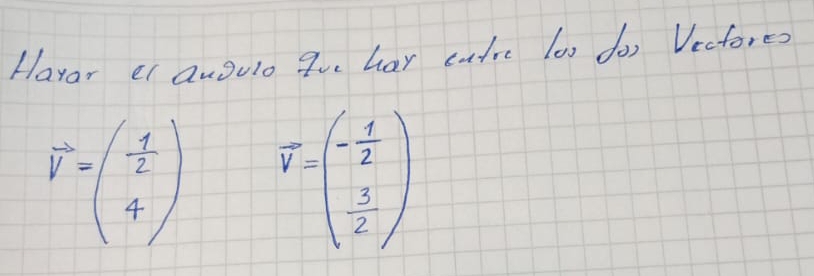 Hayar el angulo que hay entre los dos Vectores
V⃗ = ( 1/2 4 )    V⃗ = ( -1/2 3/2 )